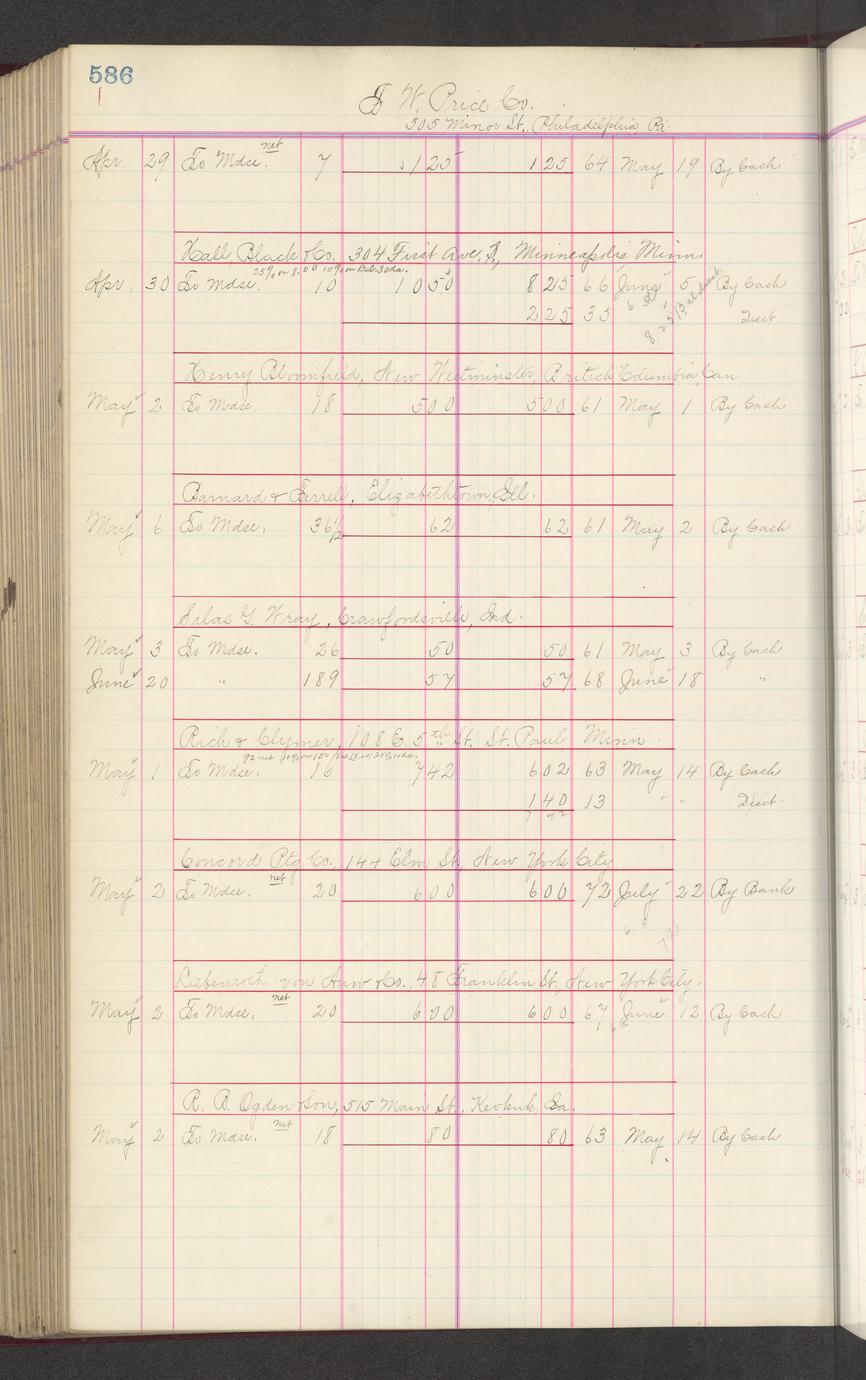 586
W. Price Co.
505 Minor St., Philadelphia Pa.
net
Apr 29 To Mdse. 7 1 25 1 25 64 May 19 By Cash
Hall, Black & Co. 304 First Ave. S, Minneapolis Minn.
25% on 8.00 10% on Bal. 30 da.
Apr. 30 To Mdse. 10 10 50 8 25 66 June 5 By Cash
2 25 35 Disct.
Henry Bloomfield, New Westminster, British Columbia, Can
May 2 To Mdse. 18 5 00 5 00 61 May 1 By Cash
Barnard & Ferrell, Elizabethtown, Ill.
May 6 To Mdse. 36 1/2 62 62 61 May 2 By Cash
Silas G. Wray, Crawfordsville, Ind.
May 3 To Mdse. 26 50 50 61 May 3 By Cash
June 20 " 189 57 57 68 June 18 "
Rich & Clymer, 108 E. 5th St. St. Paul Minn.
May 1 To Mdse. 16 7 42 6 02 63 May 14 By Cash
1 40 13 " " Disct.
7 42
Concord Ptg Co., 144 Elm St., New York City
net
May 2 To Mdse. 20 6 00 6 00 72 July 22 By Bank
Liebenroth von Auw & Co., 48 Franklin St., New York City.
net
May 2 To Mdse. 20 6 00 6 00 67 June 12 By Cash
R. B. Ogden & Son, 515 Main St., Keokuk, Ia.
net
May 2 To Mdse. 18 80 80 63 May 14 By Cash